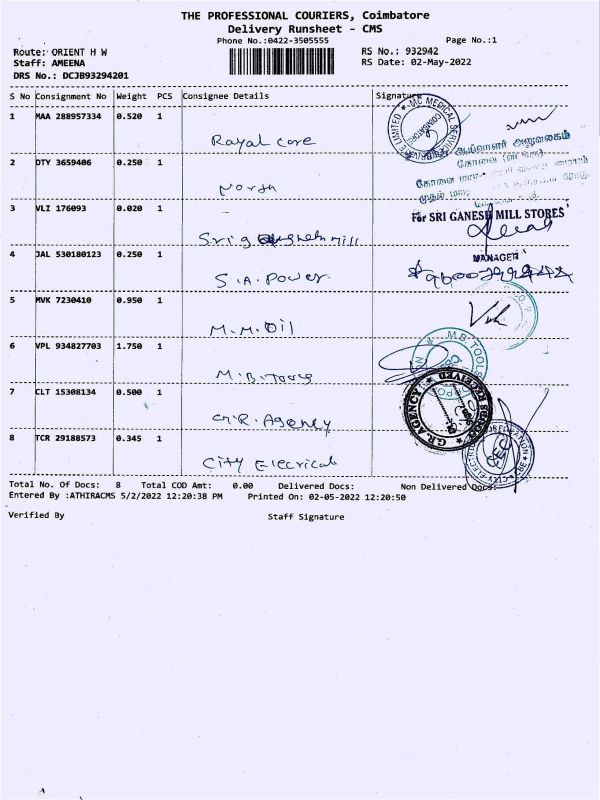 THE PROFESSIONAL COURIERS, Coimbatore
Delivery Runsheet - CMS
Phone No.:0422-3505555
Page No.:1
Route: ORIENT H W
RS No.: 932942
Staff: AMEENA
RS Date: 02-May-2022
DRS No.: DCJB93294201
S No Consignment No Weight PCS Consignee Details Signature
1 MAA 288957334 0.520 1
Royal Care
MC MEDICAL SERVICE PRIVATE LIMITED COIMBATORE
ஆய்வாளர் அலுவலகம்
2 DTY 3659406 0.250 1
North
கோவை
முதல் மாடி
3 VLI 176093 0.020 1
For SRI GANESH MILL STORES
Sri ganesh mill
4 JAL 530180123 0.250 1
MANAGER
S.A. Power
5 MVK 7230410 0.950 1
M.M. Oil
6 VPL 934827703 1.750 1
M.B. TOOLS
M.B. Tools
7 CLT 15308134 0.500 1
G.R. AGENCY GOODS RECEIVED
G.R. Agency
8 TCR 29188573 0.345 1
CITY ELECTRICAL CORPORATION
City Electrical
Total No. Of Docs: 8 Total COD Amt: 0.00 Delivered Docs: Non Delivered Docs:
Entered By :ATHIRACMS 5/2/2022 12:20:38 PM Printed On: 02-05-2022 12:20:50
Verified By Staff Signature